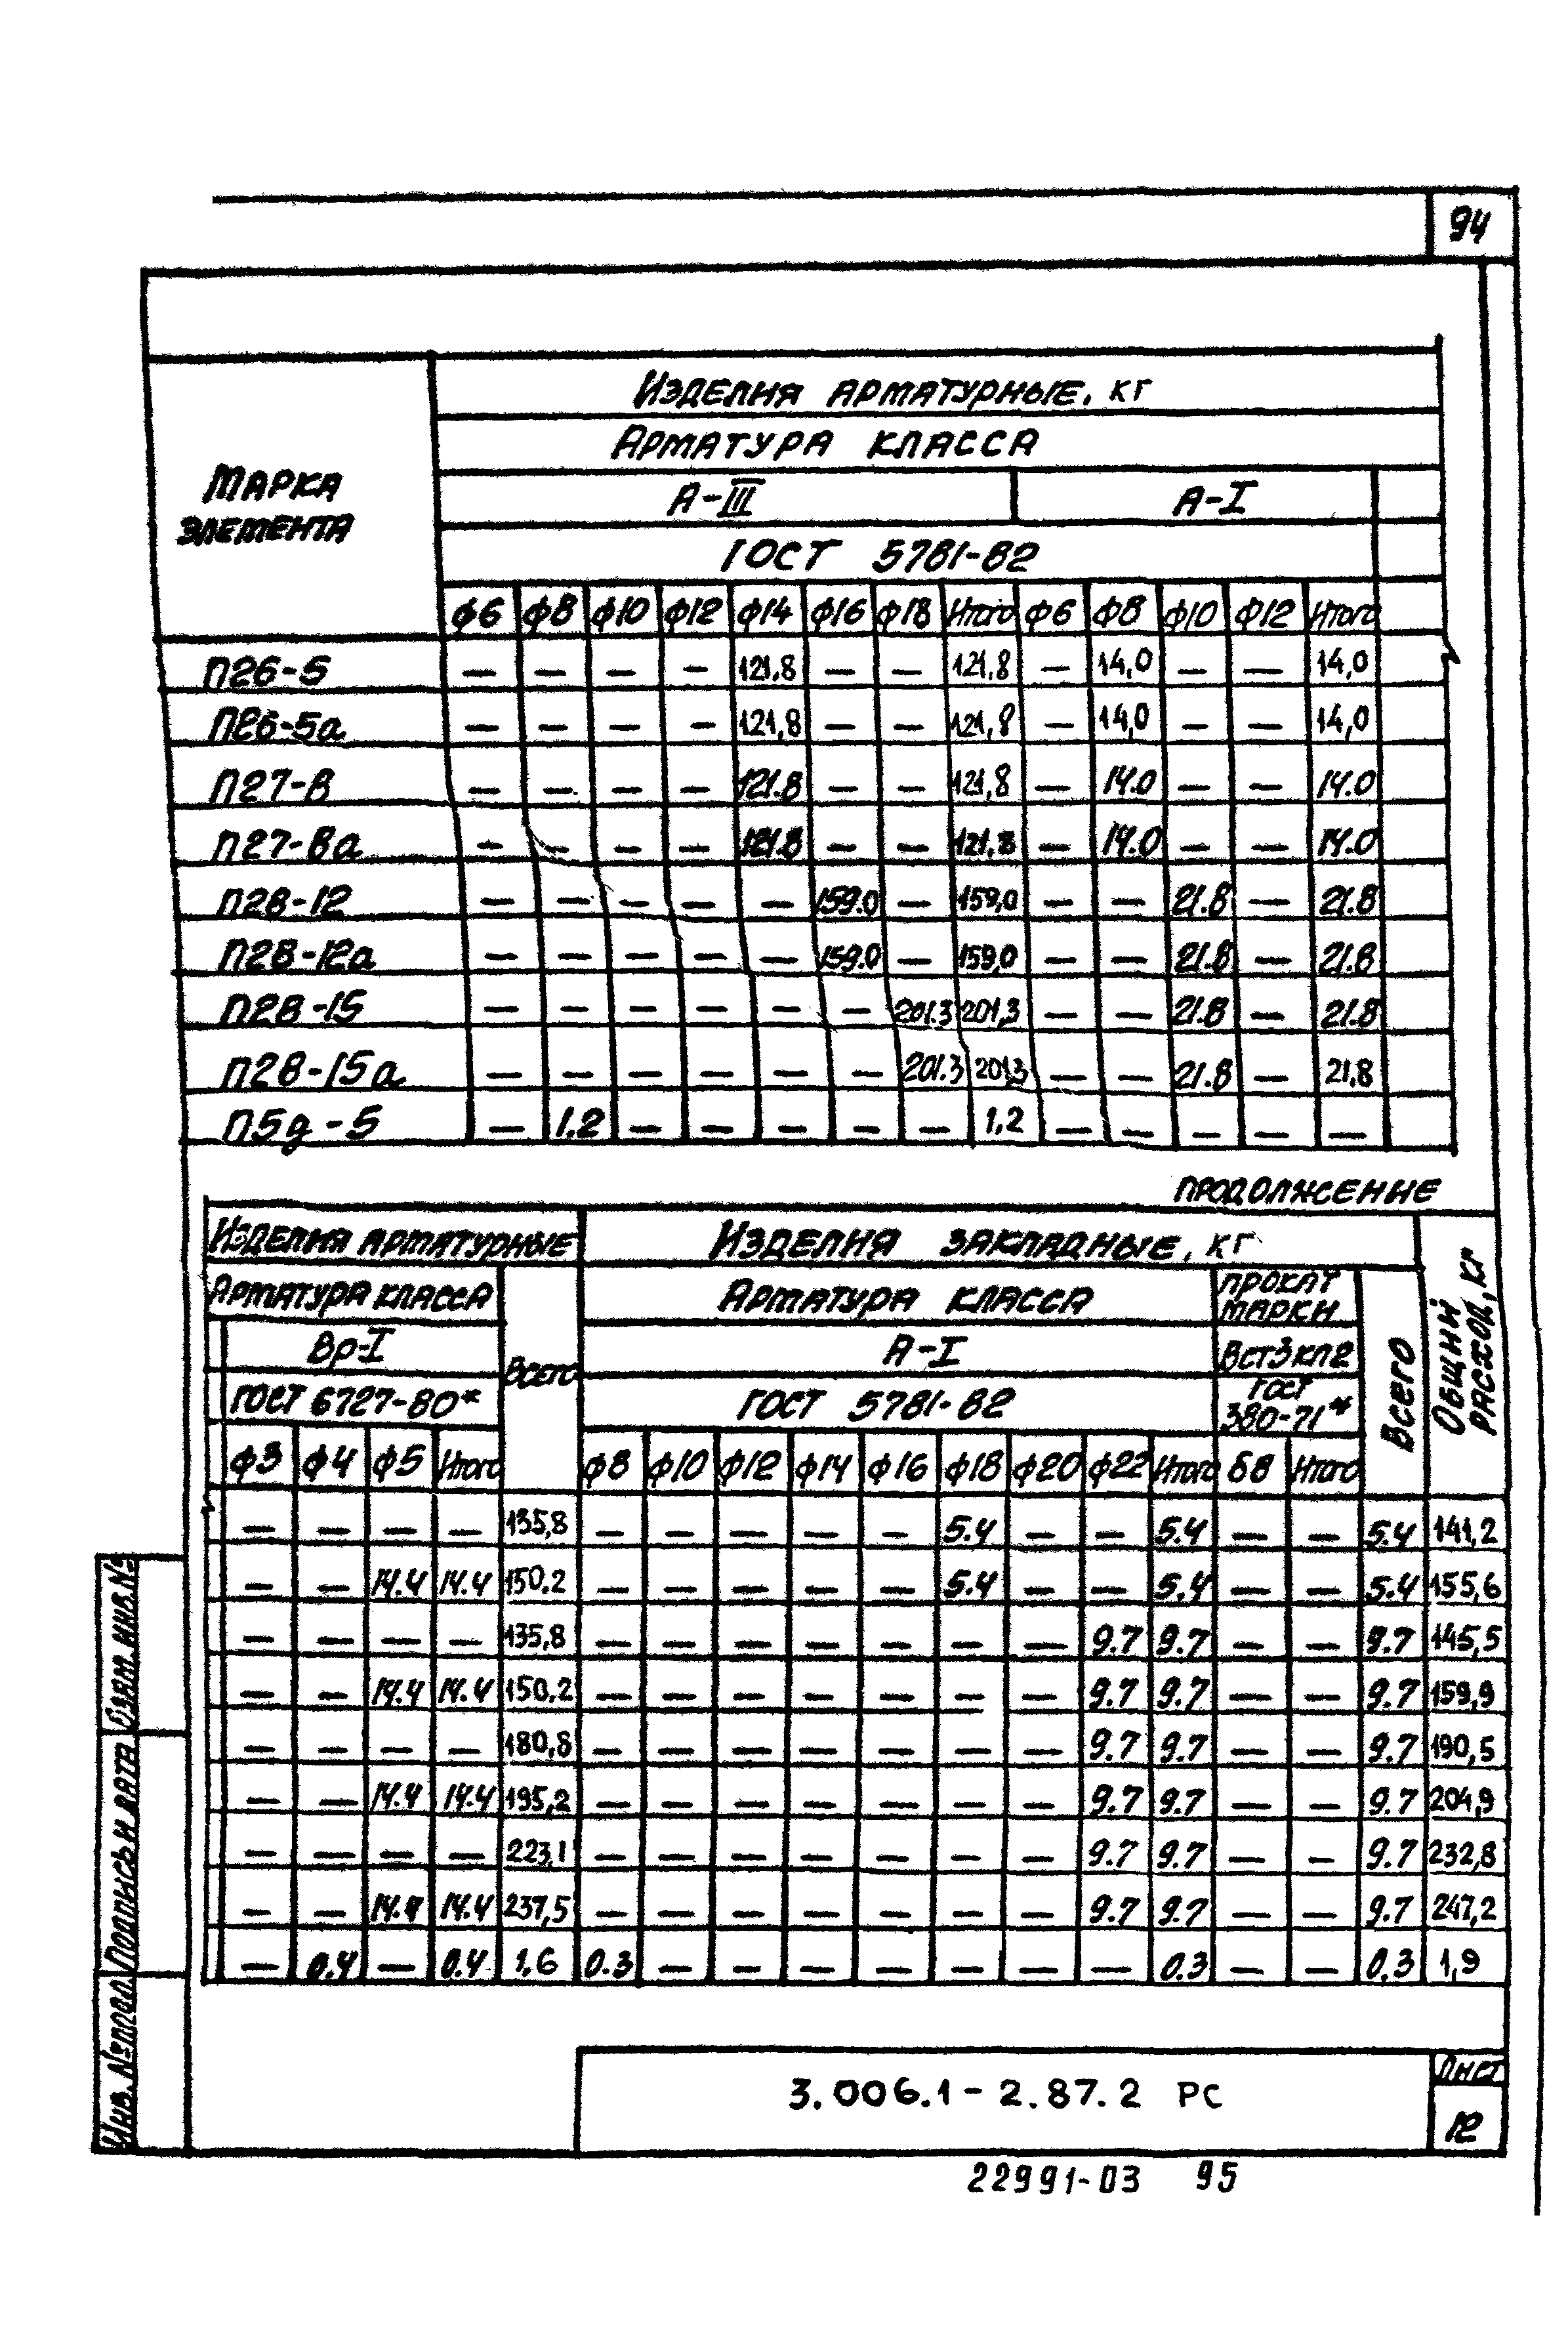 94
Изделия арматурные, кг
Арматура класса
Марка элемента
А-III А-I
ГОСТ 5781-82
ф6 ф8 ф10 ф12 ф14 ф16 ф18 Итого ф6 ф8 ф10 ф12 Итого
П26-5 — — — — 121.8 — — 121,8 — 14,0 — — 14,0
П26-5а — — — — 121,8 — — 121,8 — 14,0 — — 14,0
П27-8 — — — — 121.8 — — 121,8 — 14.0 — — 14.0
П27-8а — — — — 121.8 — — 121.8 — 14.0 — — 14.0
П28-12 — — — — — 159.0 — 159,0 — — 21.8 — 21.8
П28-12а — — — — — 159.0 — 159,0 — — 21.8 — 21.8
П28-15 — — — — — — 201.3 201,3 — — 21.8 — 21.8
П28-15а — — — — — — 201.3 201,3 — — 21.8 — 21,8
П5д-5 — 1.2 — — — — — 1,2 — — — — —
продолжение
Изделия арматурные Изделия закладные, кг Общий расход, кг
Арматура класса Всего Арматура класса Прокат марки Всего
Вр-I А-I Вст3кп2
ГОСТ 6727-80* ГОСТ 5781-82 ГОСТ 380-71*
ф3 ф4 ф5 Итого ф8 ф10 ф12 ф14 ф16 ф18 ф20 ф22 Итого δ8 Итого
— — — — 135,8 — — — — — 5.4 — — 5.4 — — 5.4 141,2
— — 14.4 14.4 150.2 — — — — — 5.4 — — 5.4 — — 5.4 155,6
— — — — 135,8 — — — — — — — 9.7 9.7 — — 9.7 145,5
— — 14.4 14.4 150,2 — — — — — — — 9.7 9.7 — — 9.7 159,9
— — — — 180,8 — — — — — — — 9.7 9.7 — — 9.7 190,5
— — 14.4 14.4 195,2 — — — — — — — 9.7 9.7 — — 9.7 204,9
— — — — 223,1 — — — — — — — 9.7 9.7 — — 9.7 232,8
— — 14.4 14.4 237,5 — — — — — — — 9.7 9.7 — — 9.7 247,2
— 0.4 — 0.4 1,6 0.3 — — — — — — — 0.3 — — 0,3 1,9
Взам. инв.№
Подпись и дата
Инв. №подл.
3.006.1-2.87.2 РС
Лист
12
22991-03 95